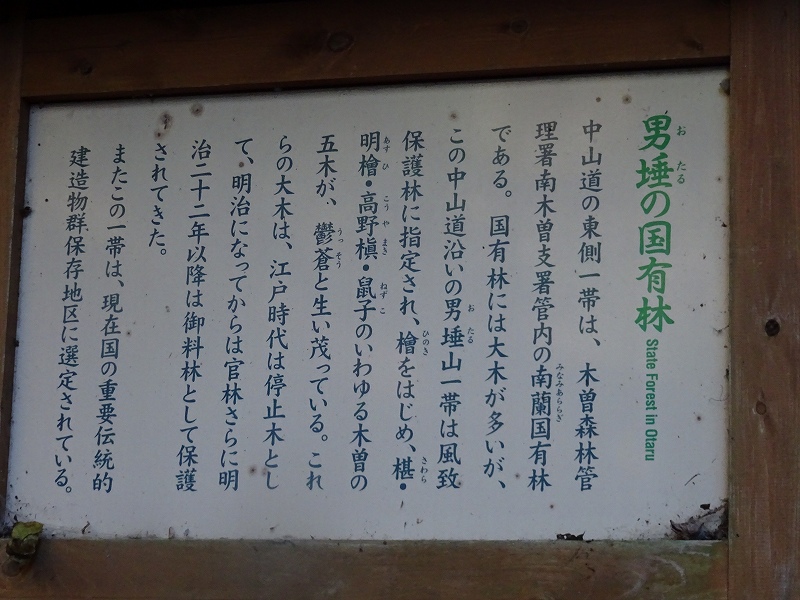 男埵の国有林 State Forest in Otaru
中山道の東側一帯は、木曽森林管
理署南木曽支署管内の南蘭国有林
である。国有林には大木が多いが、
この中山道沿いの男埵山一帯は風致
保護林に指定され、檜をはじめ、椹・
明檜・高野槇・鼠子のいわゆる木曽の
五木が、鬱蒼と生い茂っている。これ
らの大木は、江戸時代は停止木とし
て、明治になってからは官林さらに明
治二十二年以降は御料林として保護
されてきた。
またこの一帯は、現在国の重要伝統的
建造物群保存地区に選定されている。